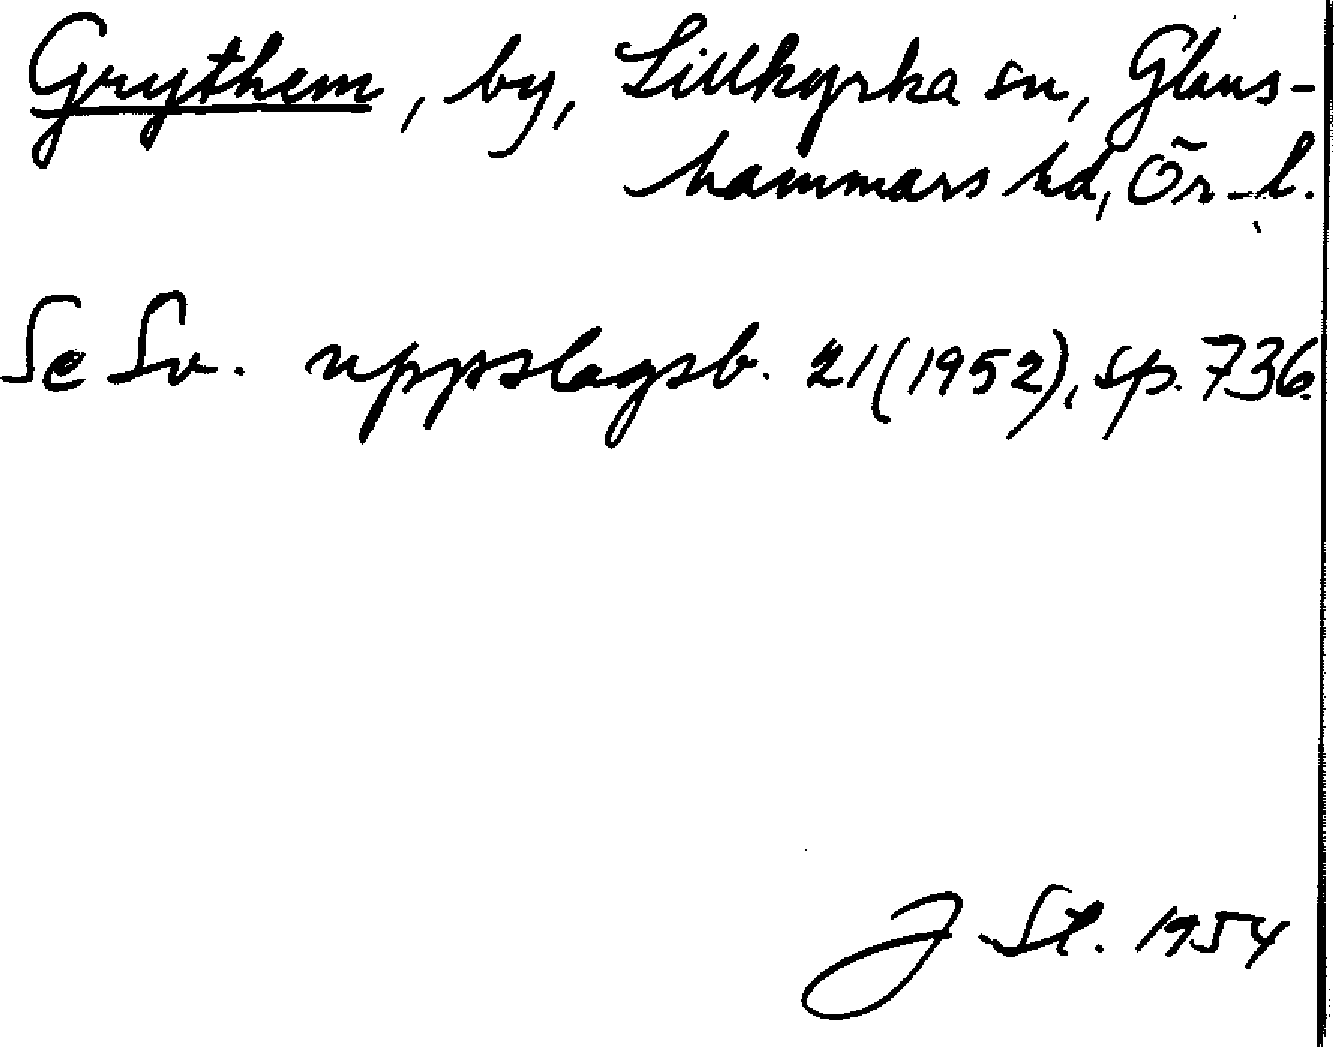 Grythem, by, Lillkyrka sn, Glans-
hammars hd, Ör-l.
Se Sv. uppslagsb. 21(1952), sp. 736.
J St. 1954